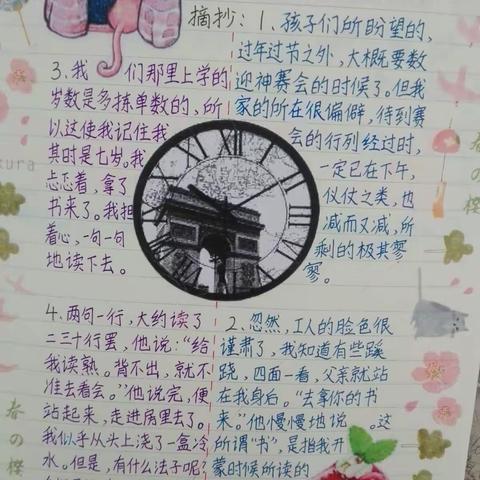 摘抄：1、孩子们所盼望的，
过年过节之外，大概要数
迎神赛会的时候了。但我
家的所在很偏僻，待到赛
会的行列经过时，
一定已在下午，
仪仗之类，也
减而又减，所
剩的极其寥
寥。
2、忽然，工人的脸色很
谨肃了，我知道有些蹊
跷，四面一看，父亲就站
在我身后。“去拿你的书
来。”他慢慢地说。这
所谓“书”，是指我开
蒙时候所读的
3、我们那里上学的
岁数是多拣单数的，所
以这使我记住我
其时是七岁。我
忐忑着，拿了
书来了。我担
着心，一句一句
地读下去。
4、两句一行，大约读了
二三十行罢，他说：“给
我读熟。背不出，就不
准去看会。”他说完，便
站起来，走进房里去了。
我似乎从头上浇了一盆冷
水。但是，有什么法子呢？
kura
春の樱
春の樱